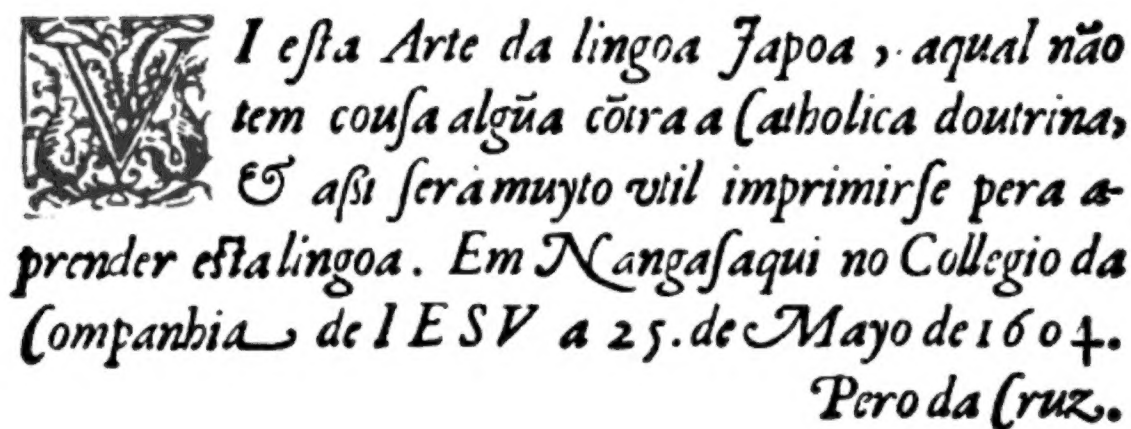 VI eſta Arte da lingoa Japoa, aqual não
tem couſa algũa cõtra a Catholica doutrina,
& aßi ſerà muyto vtil imprimirſe pera a-
prender eſta lingoa. Em Nangaſaqui no Collegio da
Companhia de IESV a 25. de Mayo de 1604.
Pero da Cruz.